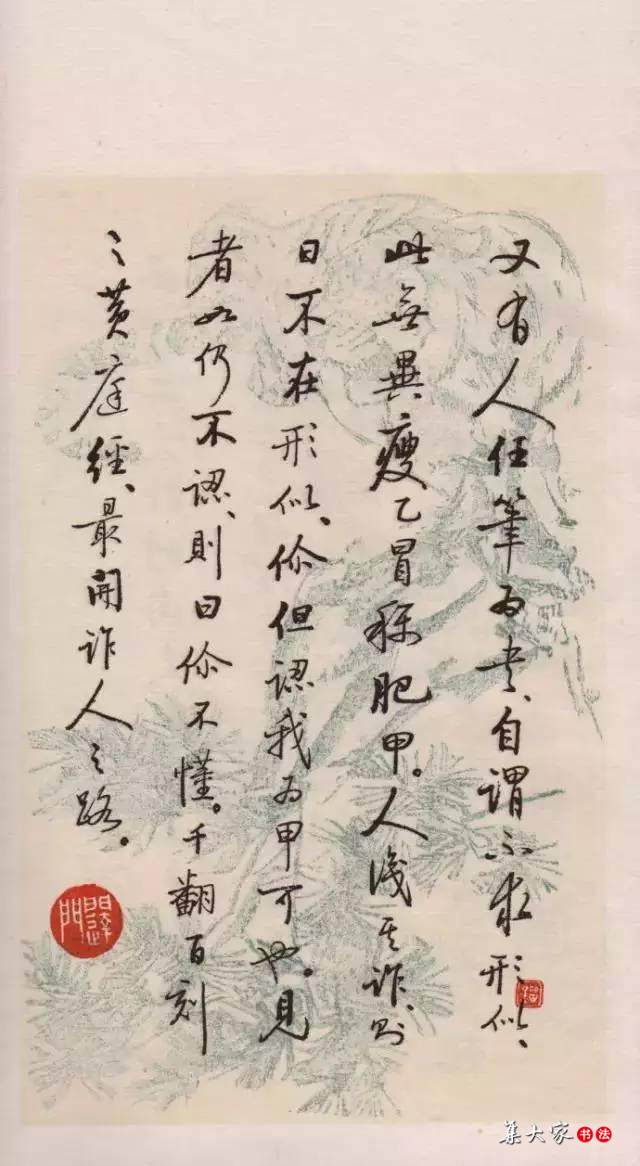 又有人任筆为书、自謂不求形似、
此無異瘦乙冒称肥甲。人識其詐、则
曰不在形似、你但認我为甲可也。見
者如仍不認、則曰你不懂。千翻百刻
之黄庭經、最開詐人之路。
集大家书法